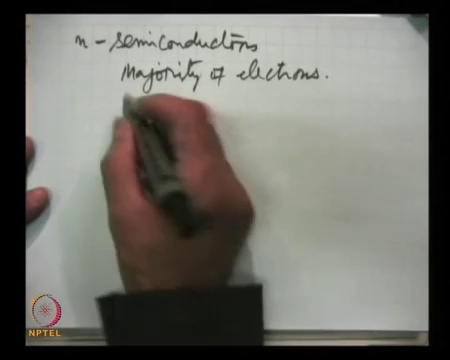 n - semiconductors
Majority of electrons.
NPTEL